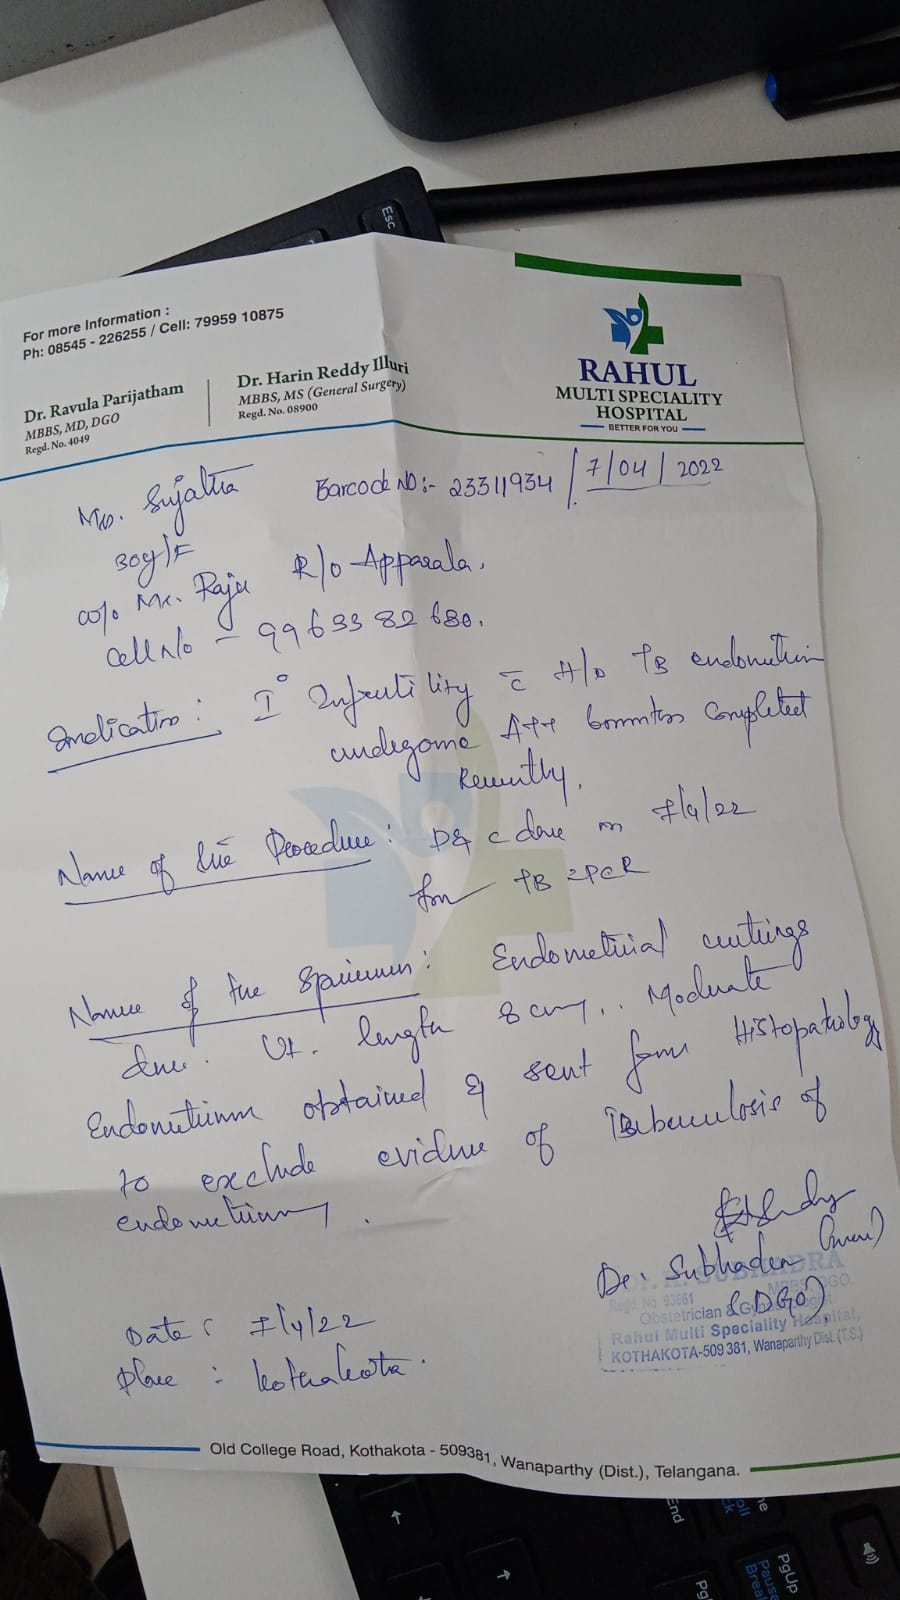 For more Information :
Ph: 08545 - 226255 / Cell: 79959 10875
Dr. Ravula Parijatham
MBBS, MD, DGO
Regd. No. 4049
Dr. Harin Reddy Illuri
MBBS, MS (General Surgery)
Regd. No. 08900
RAHUL
MULTI SPECIALITY
HOSPITAL
BETTER FOR YOU
Barcode NO:- 23311934 / 7/04/2022
Mrs. Sujatha
30y/F
w/o Mr. Raju R/o Apparala.
Cell No - 99633 82 680.
Indication : I° Infertility c̄ H/o TB endometrium
undegone ATT 6 months Completed
Recently.
Name of the Procedure : D & C done on 7/4/22
for TB PCR
Name of the Specimen : Endometrial cuttings
done. Ut. length 8 cm, Moderate
Endometrium obtained & sent for Histopathology
to exclude evidence of Tuberculosis of
endometrium.
Dr. Subhadra
(DGO)
SUBHADRA
Regd. No. 93661
Obstetrician &
Rahul Multi Speciality Hospital,
KOTHAKOTA-509 381, Wanaparthy Dist. (T.S.)
Date : 7/4/22
Place : Kothakota.
Old College Road, Kothakota - 509381, Wanaparthy (Dist.), Telangana.
Esc
End
PgUp
Pause
Break